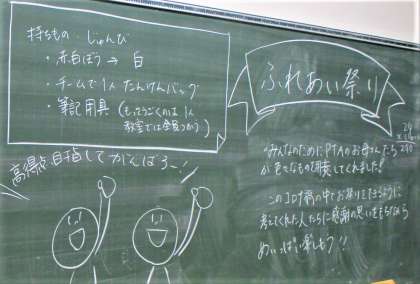 持ちもの・じゅんび
・赤白ぼう → 白
・チームで1人 たんけんバッグ
・筆記用具(もっていくのは1人
教室では全員つかう)
高得点目指してがんばろー!
ふれあい祭り
みんなのためにPTAのお母さんたち
が色々なもの用意してくれました!
このコロナ禍の中でお祭りをできるように
考えてくれた人たちに感謝の思いをもちながら
めいっぱい楽しもう!!